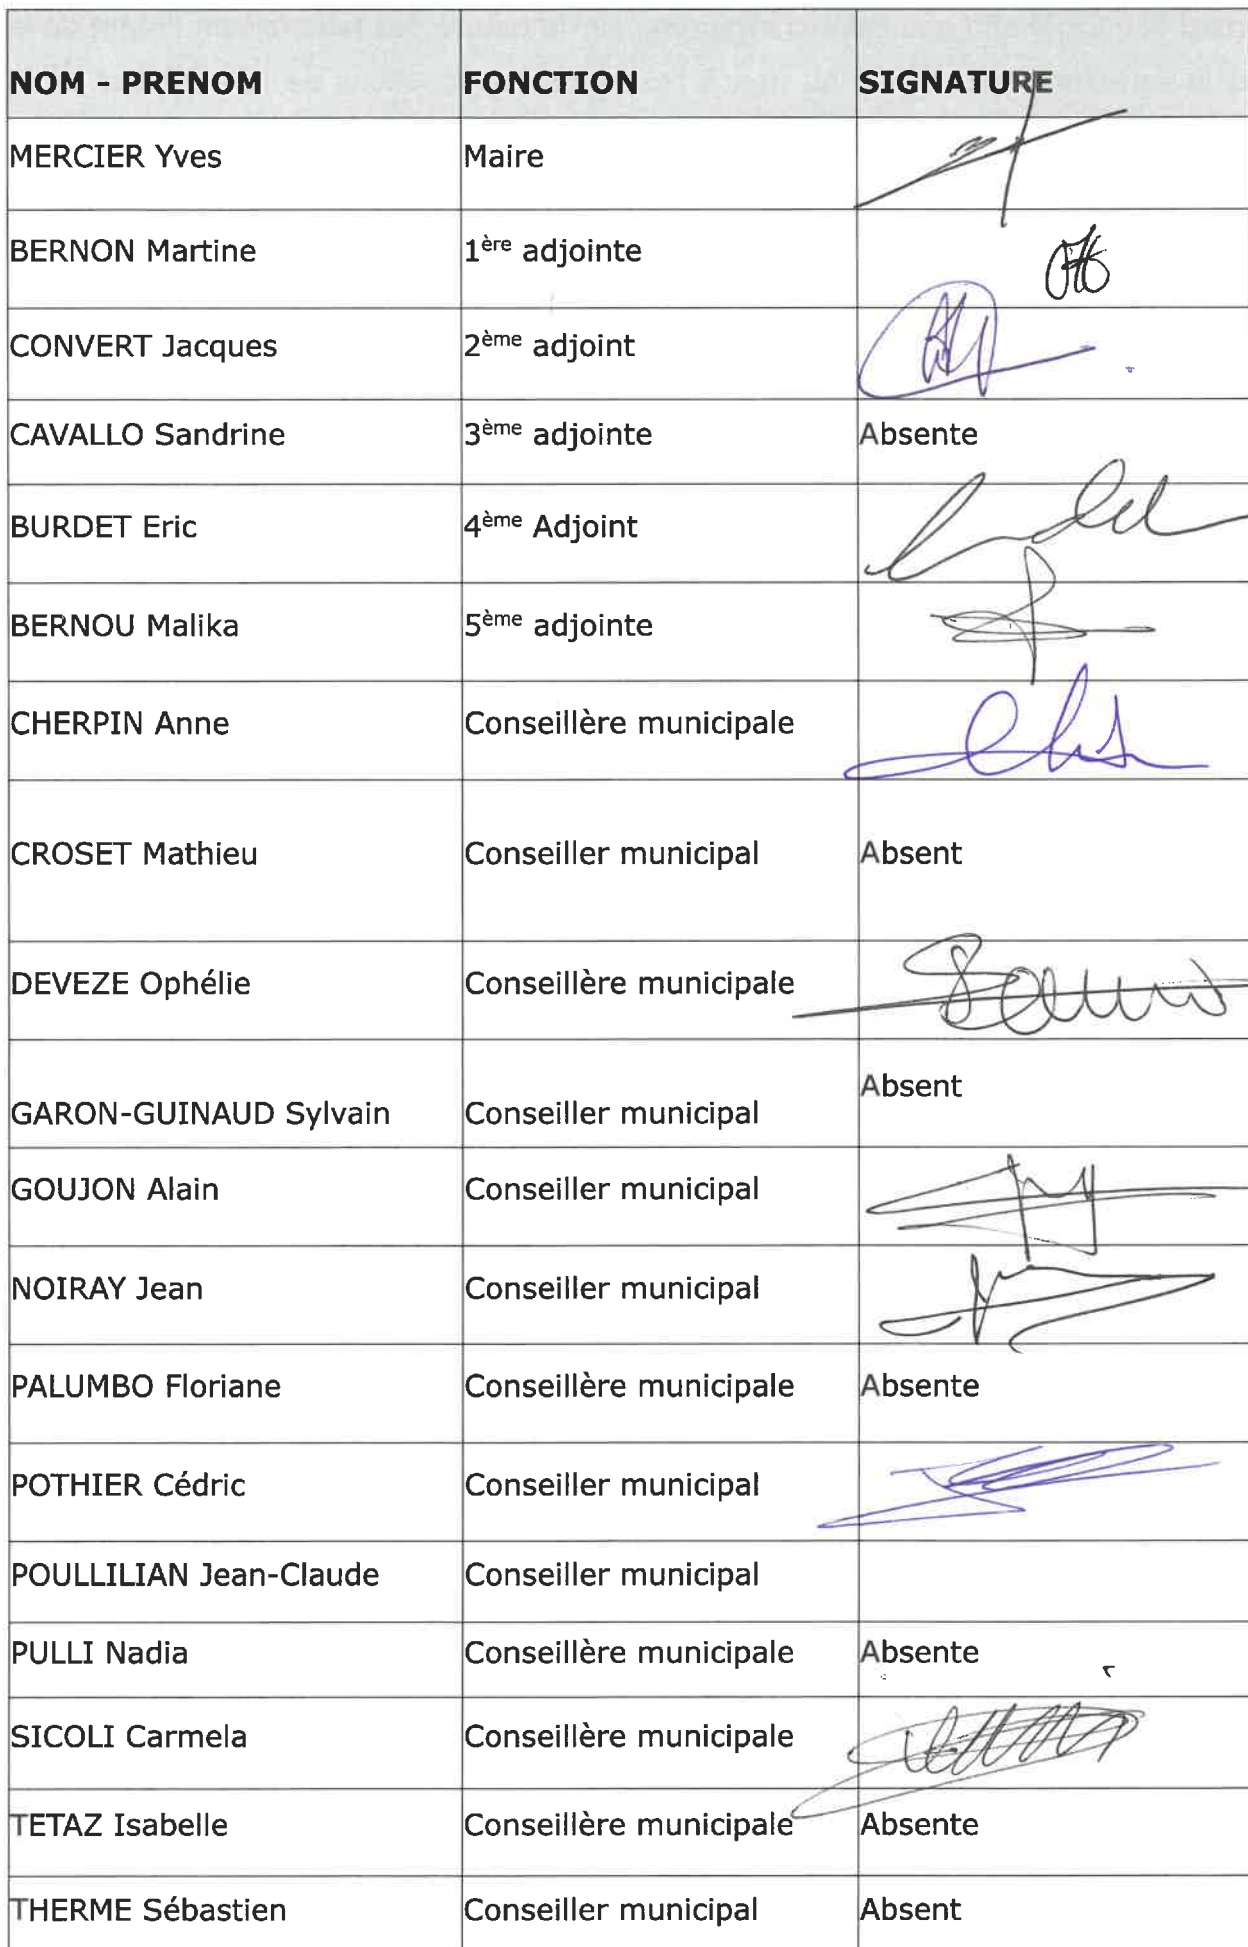 NOM - PRENOM FONCTION SIGNATURE
MERCIER Yves Maire
BERNON Martine 1ère adjointe
CONVERT Jacques 2ème adjoint
CAVALLO Sandrine 3ème adjointe Absente
BURDET Eric 4ème Adjoint
BERNOU Malika 5ème adjointe
CHERPIN Anne Conseillère municipale
CROSET Mathieu Conseiller municipal Absent
DEVEZE Ophélie Conseillère municipale
GARON-GUINAUD Sylvain Conseiller municipal Absent
GOUJON Alain Conseiller municipal
NOIRAY Jean Conseiller municipal
PALUMBO Floriane Conseillère municipale Absente
POTHIER Cédric Conseiller municipal
POULLILIAN Jean-Claude Conseiller municipal
PULLI Nadia Conseillère municipale Absente
SICOLI Carmela Conseillère municipale
TETAZ Isabelle Conseillère municipale Absente
THERME Sébastien Conseiller municipal Absent